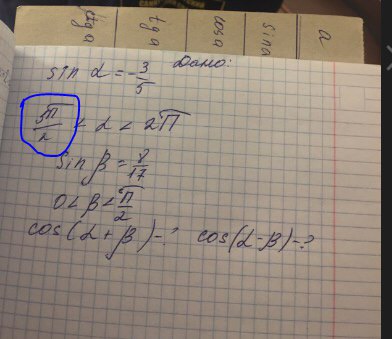 ctg a tg a cos a sin a a
Дано:
sin α = -3/5
3π/2 < α < 2π
sin β = 8/17
0 < β < π/2
cos(α + β) - ? cos(α - β) - ?